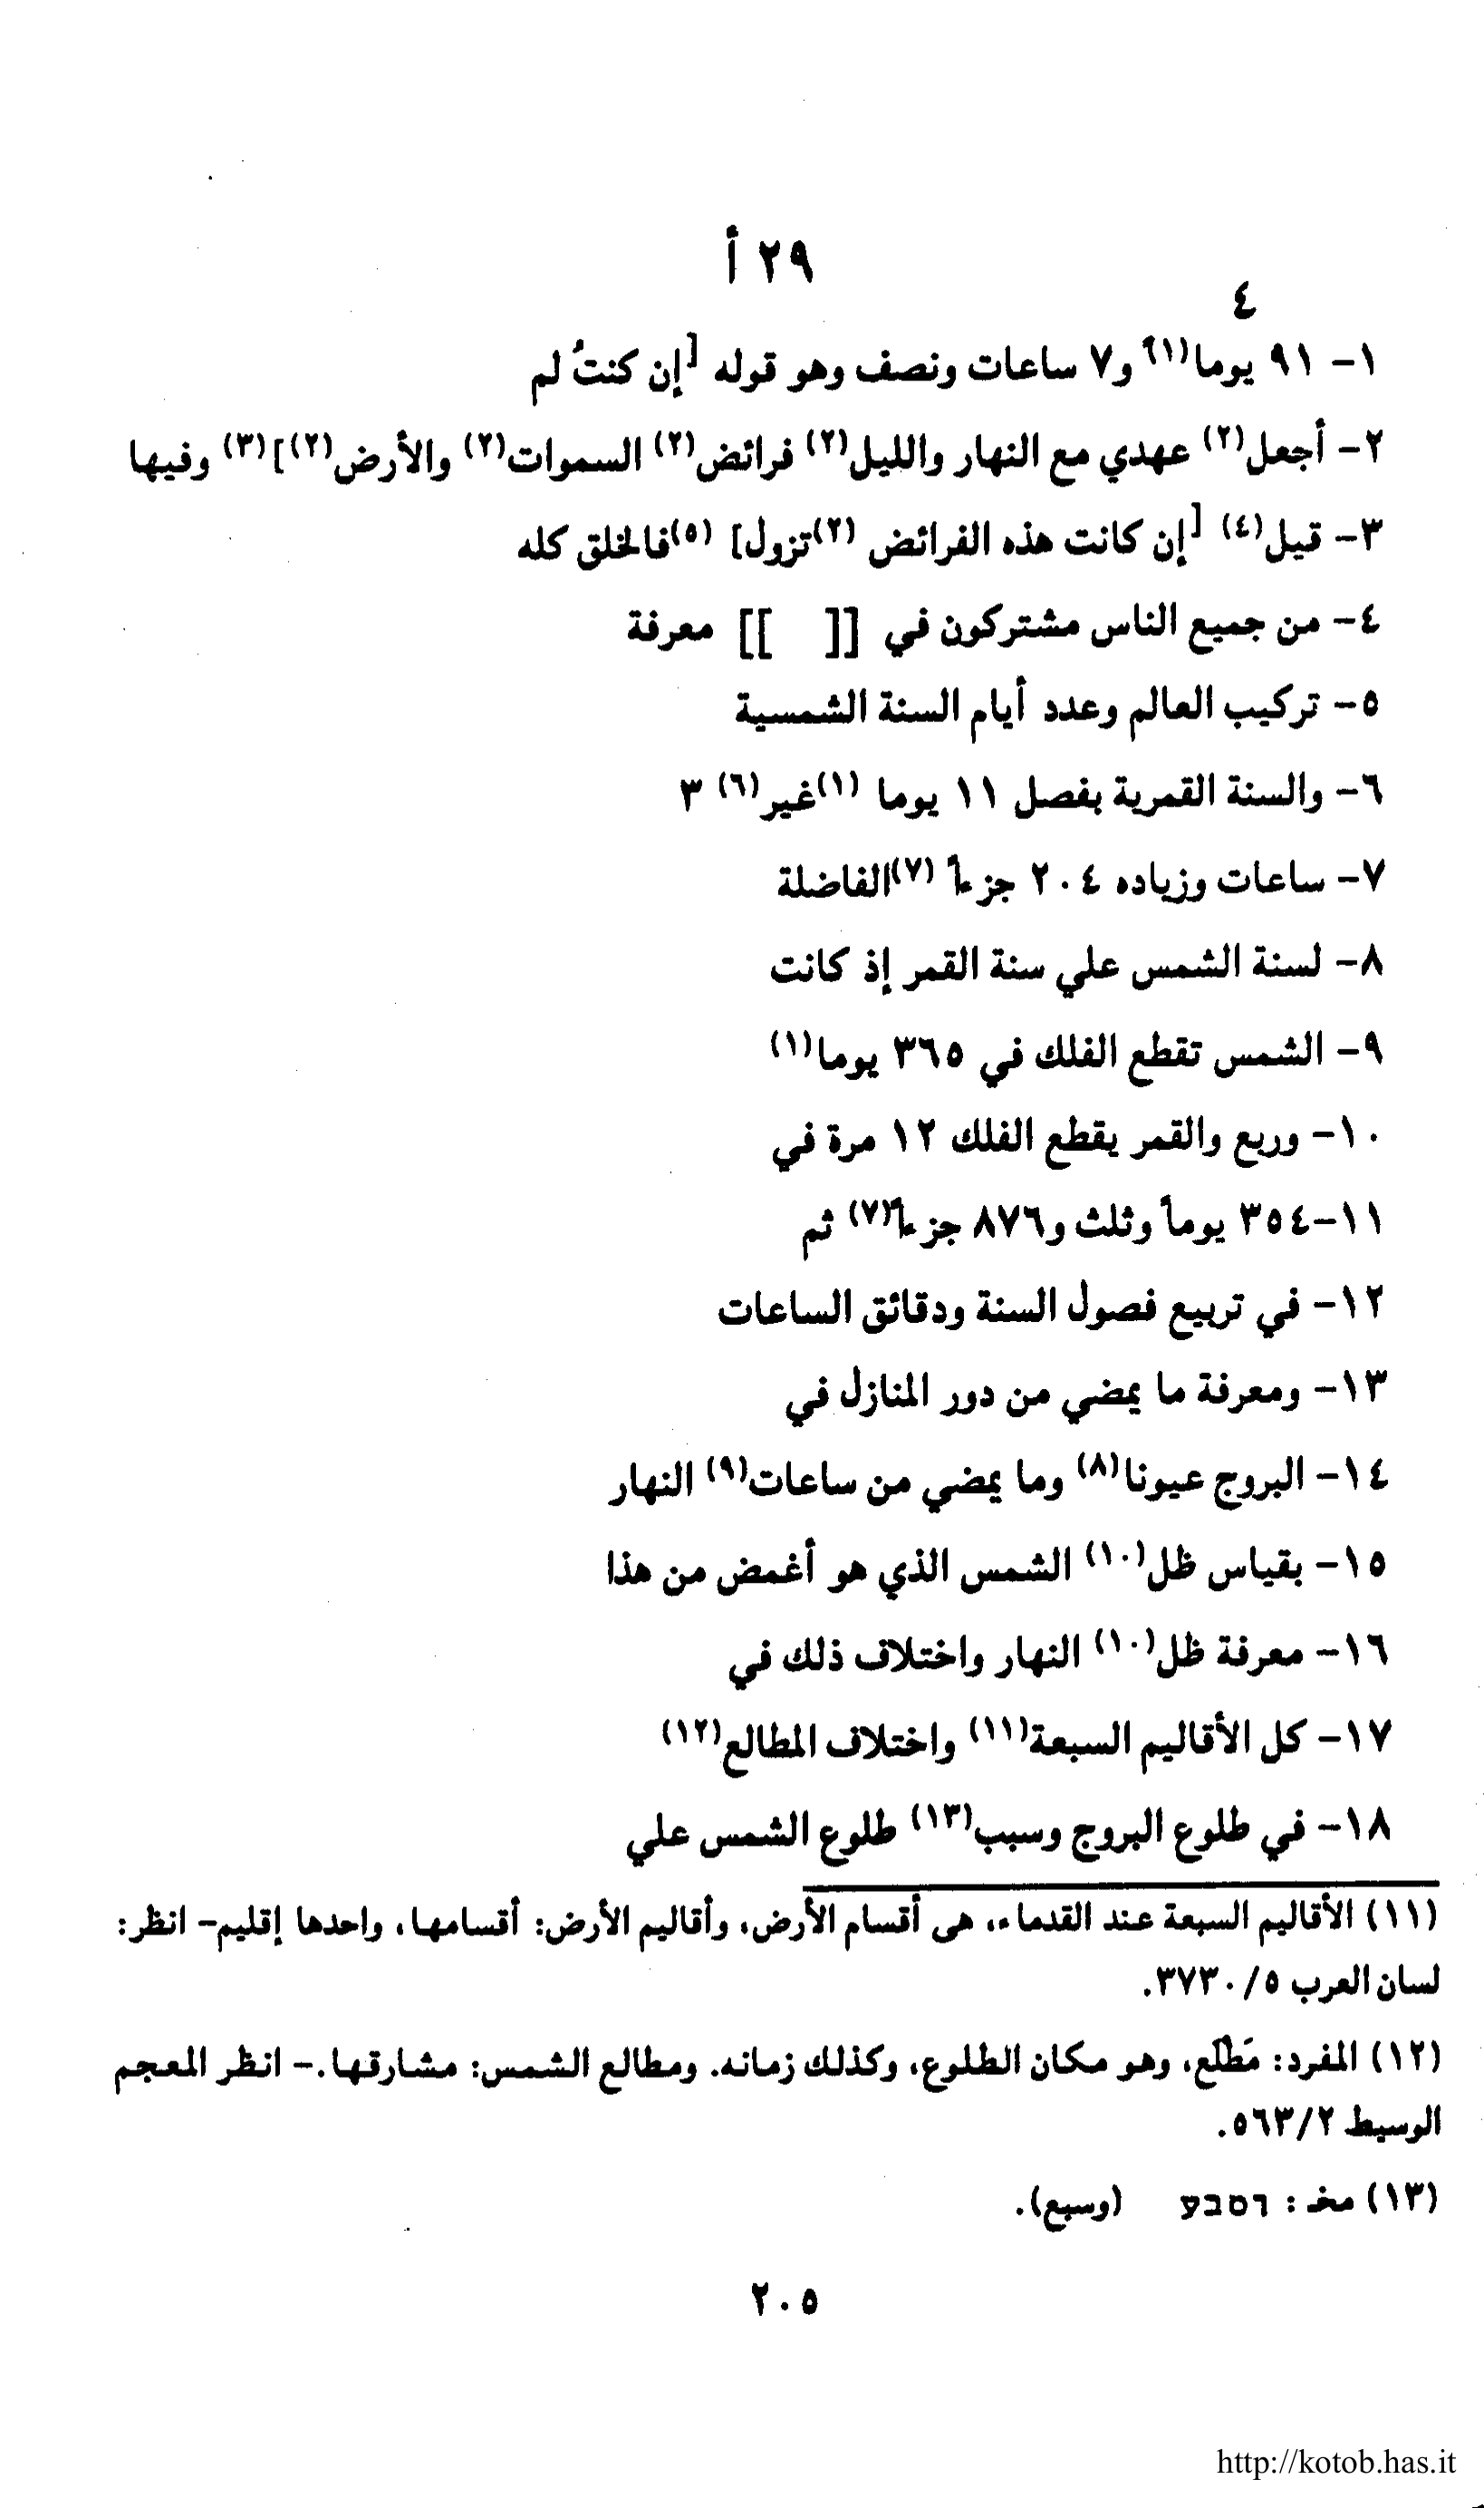 ٢٩ أ
٤
١- ٩١ يوما(١) و٧ ساعات ونصف وهو قوله [إن كنتُ لم
٢- أجعل(٢) عهدي مع النهار والليل(٢) فرائض(٢) السموات(٢) والأرض(٢)](٣) وفيها
٣- قيل(٤) [إن كانت هذه الفرائض (٢)تزول] (٥)فالخلق كله
٤- من جميع الناس مشتركون في [[ ]] معرفة
٥- تركيب العالم وعدد أيام السنة الشمسية
٦- والسنة القمرية بفصل ١١ يوما (١)غير(٦) ٣
٧- ساعات وزياده ٢٠٤ جزءاً (٧)الفاضلة
٨- لسنة الشمس علي سنة القمر إذ كانت
٩- الشمس تقطع الفلك في ٣٦٥ يوما(١)
١٠- وربع والقمر يقطع الفلك ١٢ مرة في
١١-٣٥٤ يوماً وثلث و٨٧٦ جزءاً(٧) ثم
١٢- في تربيع فصول السنة ودقائق الساعات
١٣- ومعرفة ما يمضي من دور المنازل في
١٤- البروج عيونا(٨) وما يمضي من ساعات(٩) النهار
١٥- بقياس ظل(١٠) الشمس الذي هو أغمض من هذا
١٦- معرفة ظل(١٠) النهار واختلاف ذلك في
١٧- كل الأقاليم السبعة(١١) واختلاف المطالع(١٢)
١٨- في طلوع البروج وسبب(١٣) طلوع الشمس علي
(١١) الأقاليم السبعة عند القدماء، هى أقسام الأرض، وأقاليم الأرض: أقسامها، واحدها إقليم- انظر:
لسان العرب ٣٧٣٠/٥.
(١٢) المفرد: مَطْلَع، وهو مكان الطلوع، وكذلك زمانه. ومطالع الشمس: مشارقها.- انظر المعجم
الوسيط ٥٦٣/٢.
(١٣) مخـ: וסבע (وسبع).
٢٠٥
http://kotob.has.it